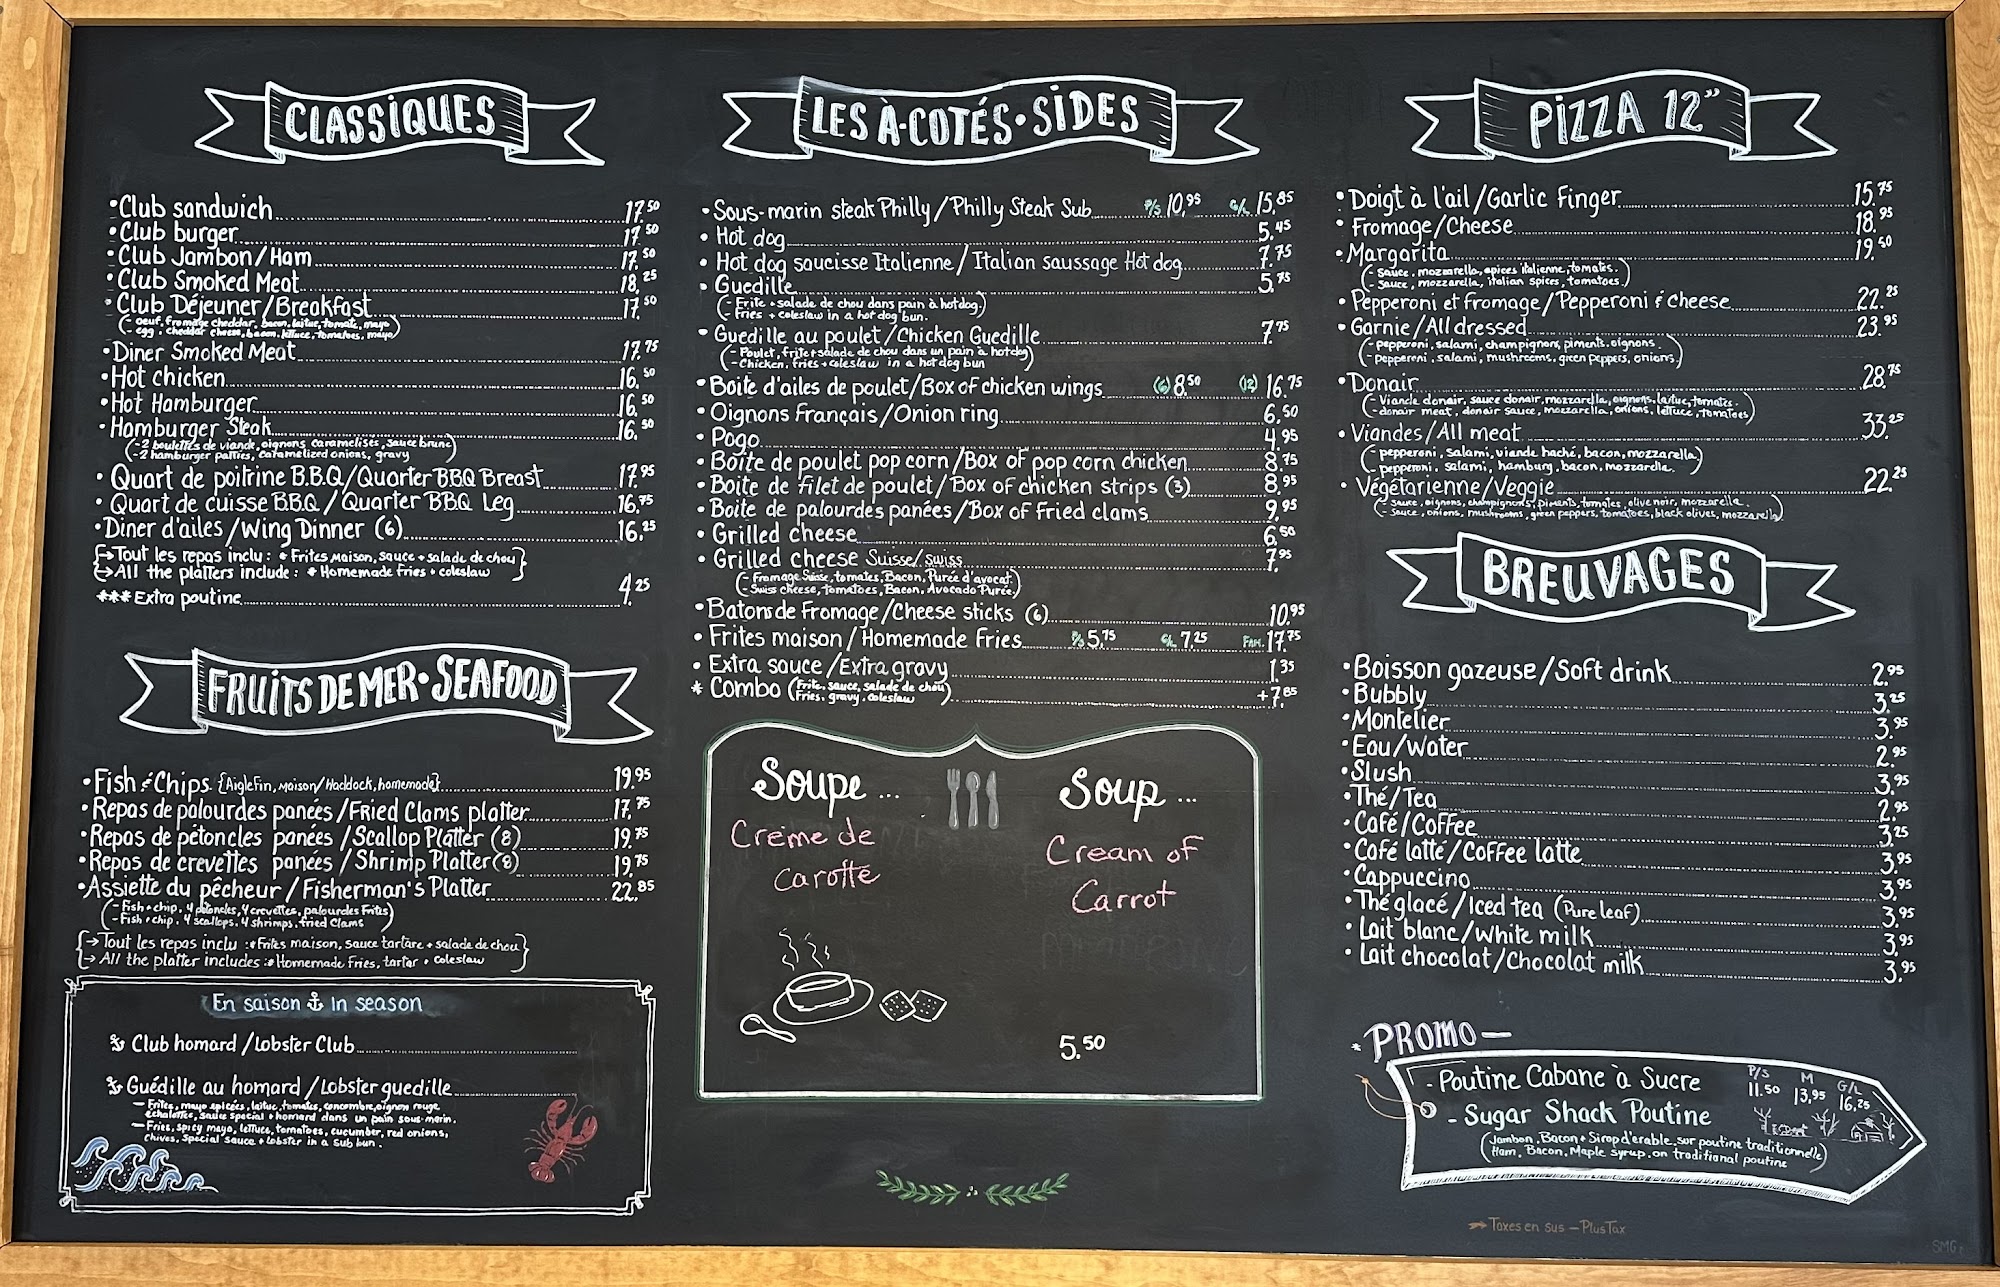 CLASSIQUES
•Club sandwich 17.50
•Club burger 17.50
•Club Jambon/Ham 17.50
•Club Smoked Meat 18.25
•Club Déjeuner/Breakfast 17.50
(- oeuf, fromage cheddar, bacon, laitue, tomate, mayo
egg, cheddar cheese, bacon, lettuce, tomatoes, mayo)
•Diner Smoked Meat 17.75
•Hot chicken 16.50
•Hot Hamburger 16.50
•Hamburger Steak 16.50
(-2 boulettes de viande, oignons caramelisés, sauce brune)
(-2 hamburger patties, caramelized onions, gravy)
•Quart de poitrine B.B.Q/Quarter BBQ Breast 17.95
•Quart de cuisse B.B.Q/Quarter BBQ Leg 16.75
•Diner d'ailes/Wing Dinner (6) 16.25
{→Tout les repas inclu: * Frites maison, sauce + salade de chou}
{→All the platters include: * Homemade fries + coleslaw}
*** Extra poutine 4.25
FRUITS DE MER • SEAFOOD
•Fish & Chips {Aiglefin, maison/Haddock, homemade} 19.95
•Repas de palourdes panées/Fried Clams platter 17.75
•Repas de pétoncles panées/Scallop Platter (8) 19.75
•Repas de crevettes panées/Shrimp Platter (8) 19.75
•Assiette du pêcheur/Fisherman's Platter 22.85
(-Fish + chip, 4 pétoncles, 4 crevettes, palourdes Frites)
(-Fish + chip, 4 scallops, 4 shrimps, fried clams
{→Tout les repas inclu :* Frites maison, sauce tartare + salade de chou}
{→ All the platter includes :* Homemade Fries, tartar + coleslaw}
En saison ⚓ In season
Club homard/Lobster Club
Guédille au homard/Lobster guedille
— Frites, mayo épicées, laitue, tomates, concombre, oignon rouge
échalottes, sauce special + homard dans un pain sous-marin.
— Fries, spicy mayo, lettuce, tomatoes, cucumber, red onions,
chives, special sauce + lobster in a sub bun.
LES À-COTÉS • SIDES
•Sous-marin steak Philly/Philly Steak Sub P/S 10.95 G/L 15.85
•Hot dog 5.45
•Hot dog saucisse Italienne/Italian saussage Hot dog 7.75
•Guedille 5.75
(- Frite + salade de chou dans pain à hot dog)
(- Fries + coleslaw in a hot dog bun.
•Guedille au poulet/Chicken Guedille 7.75
(- Poulet, frite + salade de chou dans un pain à hot dog)
(- Chicken, fries + coleslaw in a hot dog bun
•Boite d'ailes de poulet/Box of chicken wings (6) 8.50 (12) 16.75
•Oignons Français/Onion ring 6.50
•Pogo 4.95
•Boite de poulet pop corn/Box of pop corn chicken 8.75
•Boite de filet de poulet/Box of chicken strips (3) 8.95
•Boite de palourdes panées/Box of Fried clams 9.95
•Grilled cheese 6.50
•Grilled cheese Suisse/swiss 7.95
(- Fromage Suisse, tomates, Bacon, Purée d'avocat.)
(- Swiss cheese, Tomatoes, Bacon, Avocado Purée.)
•Batons de Fromage/Cheese sticks (6) 10.95
•Frites maison/Homemade Fries P/S 5.75 G/L 7.25 FAM. 17.75
•Extra sauce/Extra gravy 1.35
* Combo (Frite, sauce, salade de chou +7.85
Fries, gravy, coleslaw)
Soupe ... Soup ...
Crème de
carotte
Cream of
Carrot
5.50
PIZZA 12"
•Doigt à l'ail/Garlic Finger 15.75
•Fromage/Cheese 18.95
•Margarita 19.50
(- Sauce, mozzarella, epices italienne, tomates.)
(- Sauce, mozzarella, italian spices, tomatoes.)
•Pepperoni et fromage/Pepperoni & cheese 22.25
•Garnie/All dressed 23.95
(- pepperoni, salami, champignons, piments, oignons.)
(- pepperoni, salami, mushrooms, green peppers, onions.)
•Donair 28.75
(- Viande donair, sauce donair, mozzarella, oignons, laitue, tomates.
- donair meat, donair sauce, mozzarella, onions, lettuce, tomatoes)
•Viandes/All meat 33.25
(- pepperoni, salami, viande haché, bacon, mozzarella.)
(- pepperoni, salami, hamburg, bacon, mozzarella.
•Végétarienne/Veggie 22.25
(- Sauce, oignons, champignons, piments, tomates, olive noir, mozzarella.
- Sauce, onions, mushrooms, green peppers, tomatoes, black olives, mozzarella)
BREUVAGES
•Boisson gazeuse/Soft drink 2.95
•Bubbly 3.25
•Montelier 3.95
•Eau/Water 2.95
•Slush 3.95
•Thé/Tea 2.95
•Café/Coffee 3.25
•Café latté/Coffee latte 3.95
•Cappuccino 3.95
•Thé glacé/Iced tea (Pure leaf) 3.95
•Lait blanc/White milk 3.95
•Lait chocolat/Chocolat milk 3.95
* PROMO —
- Poutine Cabane à Sucre P/S 11.50 M 13,95 G/L 16,25
- Sugar Shack Poutine
(Jambon, Bacon + Sirop d'érable, sur poutine traditionnelle
Ham, Bacon, Maple syrup, on traditional poutine)
Taxes en sus — Plus Tax
SMG